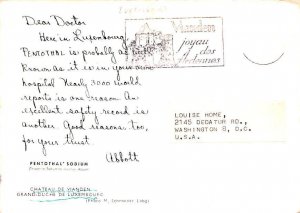 Dear Doctor
Here in Luxembourg
PENTOTHAL is probably as well
known as it is in your own
hospital. Nearly 3000 world
reports is one reason. An
excellent safety record is
another. Good reasons, too,
for your trust
Abbott
PENTOTHAL® SODIUM
CHATEAU DE VIANDEN
GRAND-DUCHE DE LUXEMBOURG
Vianden
joyau
des
Ardennes
LOUISE HOME,
2145 DECATUR RD.,
WASHINGTON 8, D.C.
U.S.A.